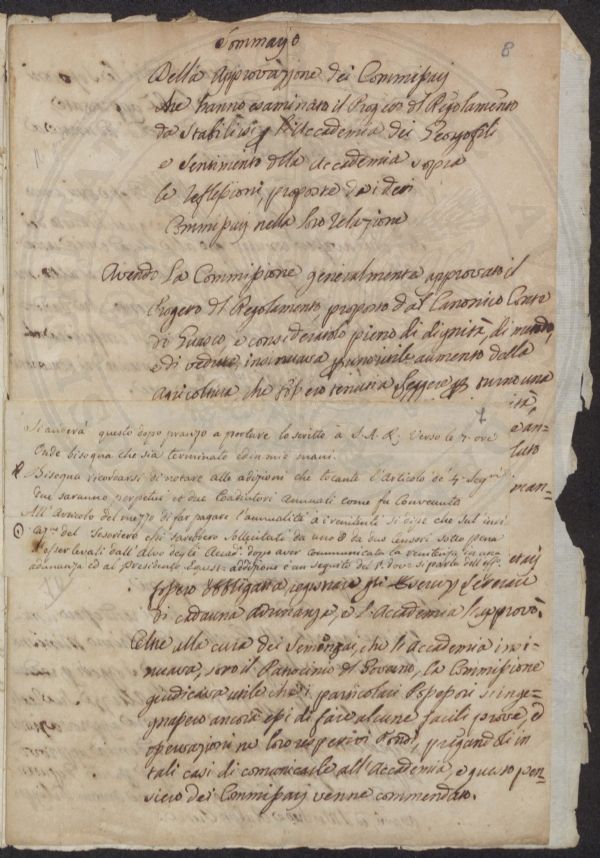 8
Sommario
Della Approvazione dei Commissarj
che hanno esaminato il Progetto del Regolamento
da Stabilirsi p l'Accademia dei Georgofili
e Sentimento della Accademia sopra
le reflessioni, proposte da i detti
Commissarj nella loro relazione
Avendo La Commissione generalmente approvato il
Progetto del Regolamento, proposto dal Canonico Conte
di Guasco, e consideratolo pieno di dignità, di metodo,
e di vedute, insinuava p un utile aumento della
agricoltura che fossero tenuti a Leggere p turno una
1
ità,
Si anderà questo dopo pranzo a portare lo scritto à S.A.R; verso le 7. ore
Onde bisogna che sia terminato ed in mie mani.
Bisogna ricordarsi di notare alle adizioni che toccante l'Articolo de 4. Segri
due saranno perpetui et due Coadiutori Annuali come fu Convenuto
man-
All'Articolo del mezzo di far pagare l'annualità a i renitenti si dise che sul invi
del Tesoriero essi sarebbero Sollecitati da uno o da due Censori sotto pena
d'esser levati dall'albo degli Accad: dopo aver communicata la renitenza in una
adunanza ed al Presidente
fossero obbligati a registrare gli
di cadauna adunanza, e l'Accademia l'approvò.
Oltre alla cura dei Semenzai, che l'Accademia insi-
nuava, sotto il Patrocinio del Governo, la Commissione
giudicava utile che i particolari Possessori s'inge-
gnassero ancora essi di fare alcune facili prove, ed
operazioni ne loro respettivi Fondi, pregandoli in
tali casi di comunicarle all'Accademia e questo pen-
siero dei Commissarj venne commendato.